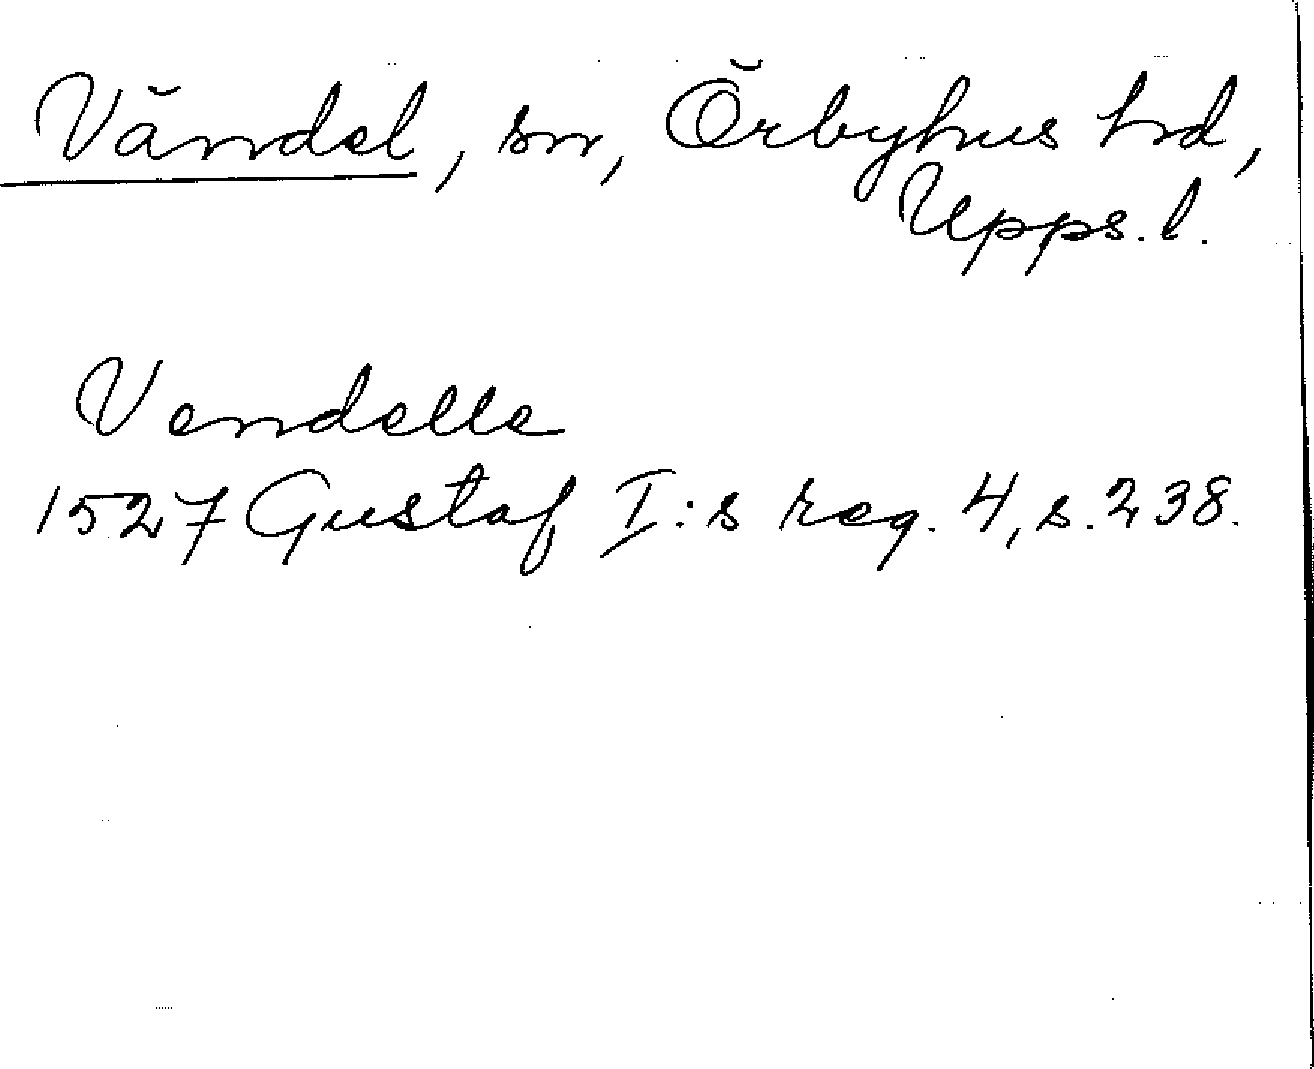 Vändel, sn, Örbyhus hd,
Upps. l.
Vendelle
1527 Gustaf I:s reg. 4, s. 238.